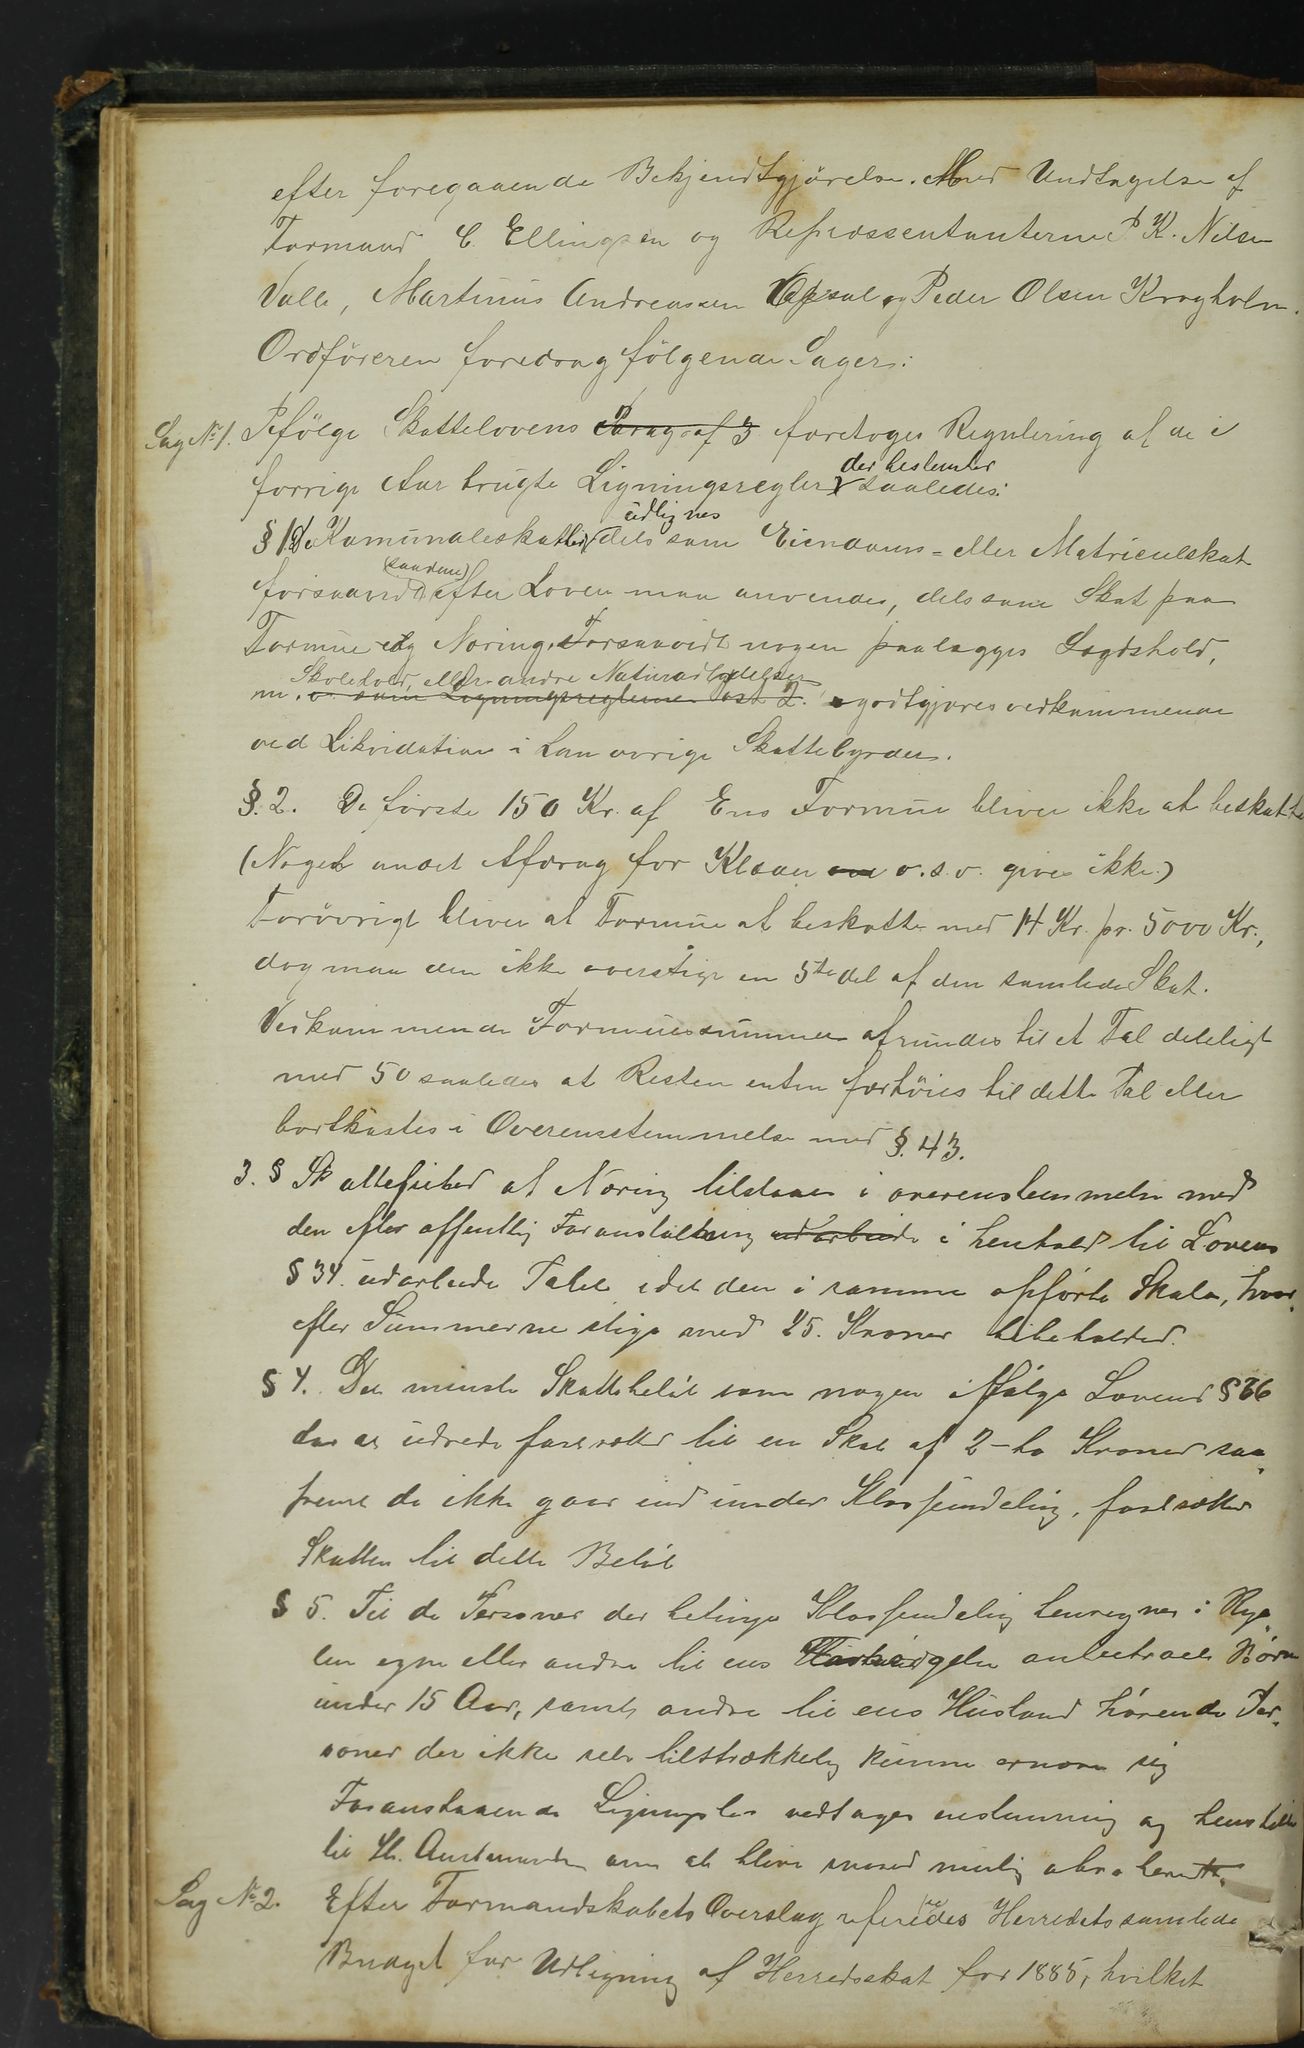 efter foregaaende Bekjendtgjörelse. Med Undtagelse af
Formand C. Ellingsen og Repræssentanterne P K. Nilsen
Valle, Martinus Andreassen Opsal og Peder Olsen Kragholm.
Ordföreren foredrog fölgende Sager:
Sag No 1. Ifölge Skattelovens Paragraf 3 foretoges Regulering af de i
forrige Aar brugte Ligningsregler der bestemtes saaledes:
§ 1 De Komunaleskatter udlignes dels som Eiendoms- eller Matriculskat
forsaavidt (saadan) efter Loven maa anvendes, dels som Skat paa
Formue og Næring. Forsaavidt nogen paalægges Lægdshold,
Skolehold, eller andre Naturalydelser
m. v. som Ligningsreglerne Post 2. godtgjøres vedkommende
ved Likvidation i hans øvrige Skattebyrder.
§. 2. De förste 150 Kr. af Ens Formue bliver ikke at beskatte
(Noget andet Afdrag for Klæder o. s. v. gives ikke.)
Forövrigt bliver at Formue at beskatte med 14 Kr. pr. 5000 Kr.,
dog maa den ikke overstige en 5te del af den samlede Skat.
Vedkommende Formuessummer afrundes til et Tal deleligt
med 50 saaledes at Resten enten forhöies til dette Tal eller
bortkastes i Overensstemmelse med §. 43.
3. § Skattefrihed at Næring tilstaaes i overenstemmelse med
den efter offentlig Foranstaltning udarbeide i henhold til Lovens
§ 34. udarbeide Tabel idet den i samme opførte Skala, hvor-
efter Summerne stige med 25. Kroner bibeholdes.
§ 4. Det minste Skattebeløb som nogen ifølge Lovens § 36
har at udrede fastsættes til en Skat af 2 - to Kroner saa-
fremt de ikke gaar ind under Klasseindeling, fastsættes
Skatten til dette Beløb
§ 5. Til de Personer der betinge Klasseindeling henregnes i Ry-
len egne eller andre til ens Forsørgelse anbetroede Börn
under 15 Aar, samt andre til ens Husstand hörende Per-
soner der ikke selv tilstrækkelig kunne ernære sig
Foranstaaende Ligningslov vedtages enstemmig og henstilles
til Hr. Amtmanden om at blive snarest mulig
Sag No 2. Efter Formandskabets Overslag refereredes Herredets samlede
Budget for Udligning af Herredsskat for 1885, hvilket